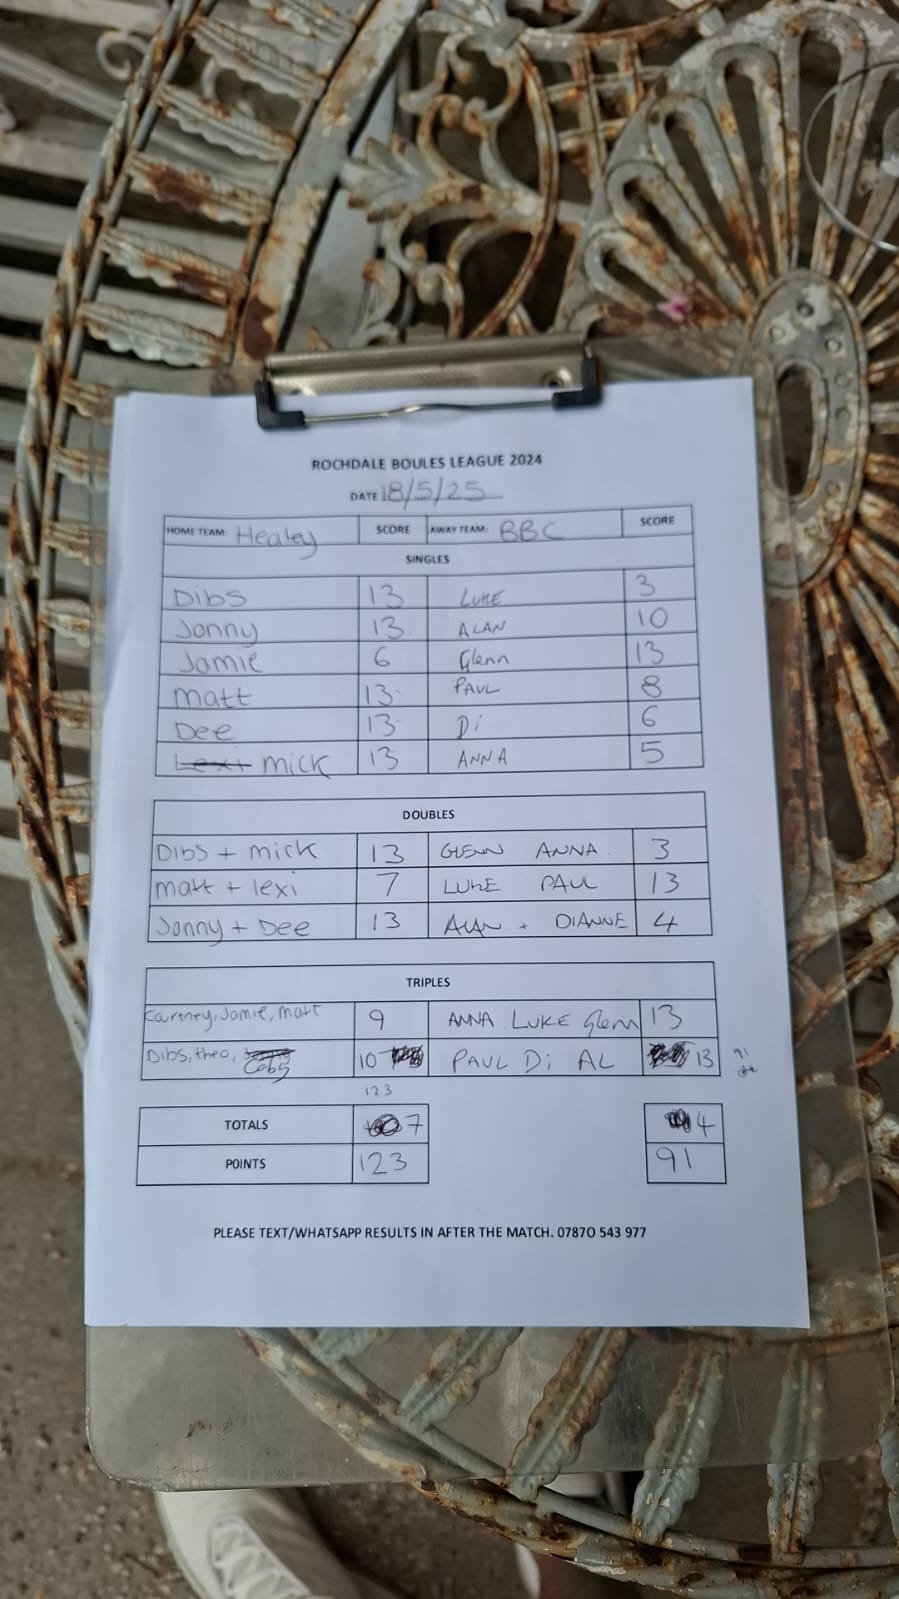 ROCHDALE BOULES LEAGUE 2024
DATE 18/5/25
HOME TEAM: Healey SCORE AWAY TEAM: BBC SCORE
SINGLES
Dibs 13 LUKE 3
Jonny 13 ALAN 10
Jamie 6 Glenn 13
Matt 13 PAUL 8
Dee 13 Di 6
Lexi mick 13 ANNA 5
DOUBLES
Dibs + mick 13 GLENN ANNA 3
Matt + lexi 7 LUKE PAUL 13
Jonny + Dee 13 ALAN + DIANNE 4
TRIPLES
Courtney, Jamie, Matt 9 ANNA LUKE Glenn 13
Dibs, theo, 10 PAUL Di AL 13 91
123
TOTALS 7 4
POINTS 123 91
PLEASE TEXT/WHATSAPP RESULTS IN AFTER THE MATCH. 07870 543 977